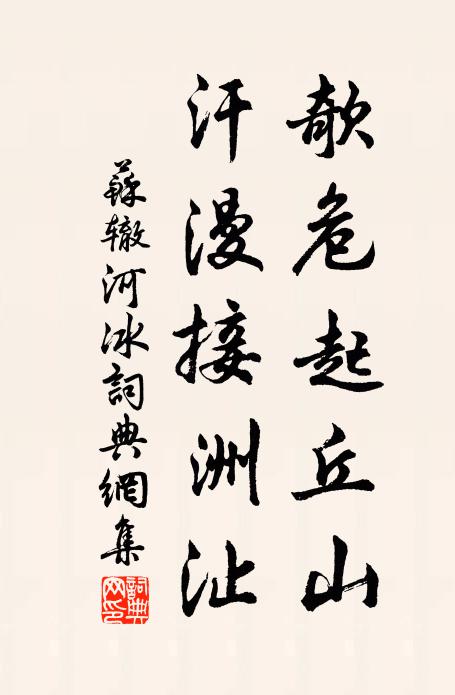 欹危起丘山
汗漫接洲沚
蘇辙河冰詞典網集
詞典网印